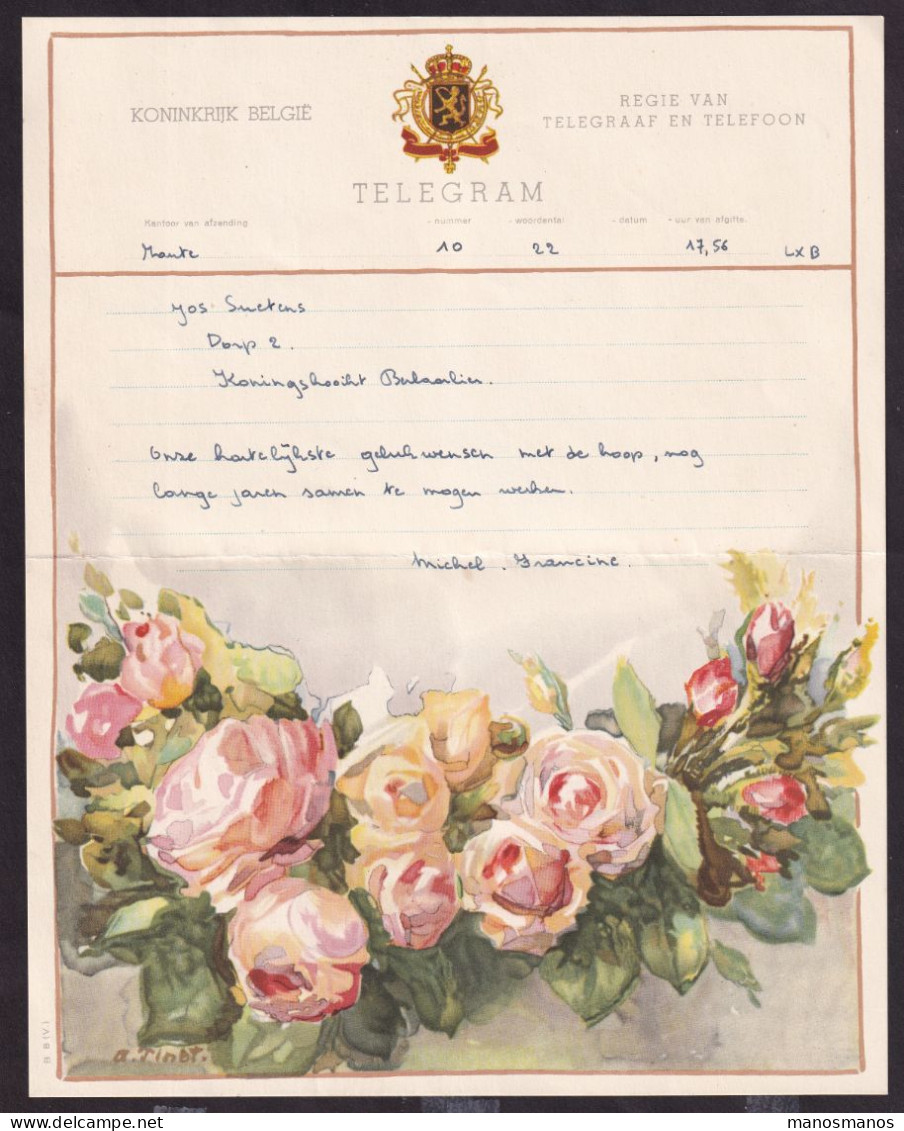 KONINKRIJK BELGIË
REGIE VAN
TELEGRAAF EN TELEFOON
TELEGRAM
Kantoor van afzending - nummer - woordental - datum - uur van afgifte
10 22 17,56 LXB
Jos Suetens
Dorp 2.
Koningshooikt Berlaarlier.
Onze hartelijkste gelukwensen met de hoop, nog
lange jaren samen te mogen werken.
Michel. Francine.
B (V)
manosmanos